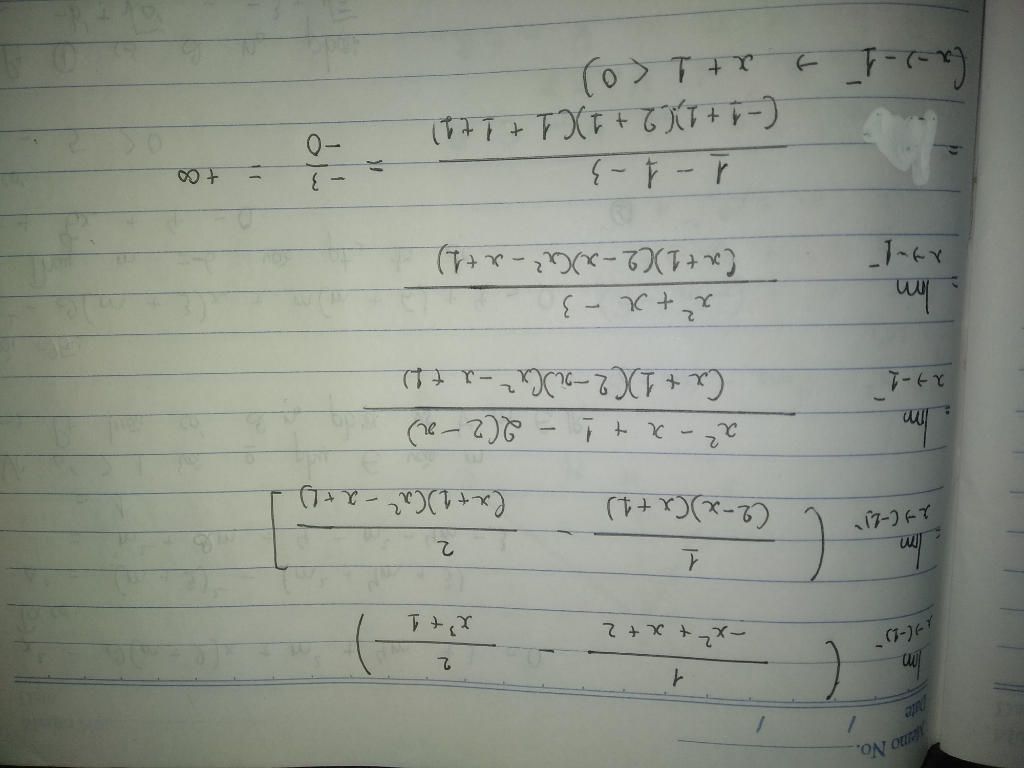 Memo No.
Date / /
lim x→(-1)⁻ ( 1/(-x² + x + 2) - 2/(x³ + 1) )
= lim x→(-1)⁻ ( 1/((2-x)(x+1)) - 2/((x+1)(x² - x + 1)) ]
= lim x→-1⁻ (x² - x + 1 - 2(2-x))/((x+1)(2-x)(x² - x + 1))
= lim x→-1⁻ (x² + x - 3)/((x+1)(2-x)(x² - x + 1))
= (1 - 1 - 3)/((-1+1)(2+1)(1+1+1)) = -3/-0 = +∞
(x→-1⁻ → x + 1 < 0)